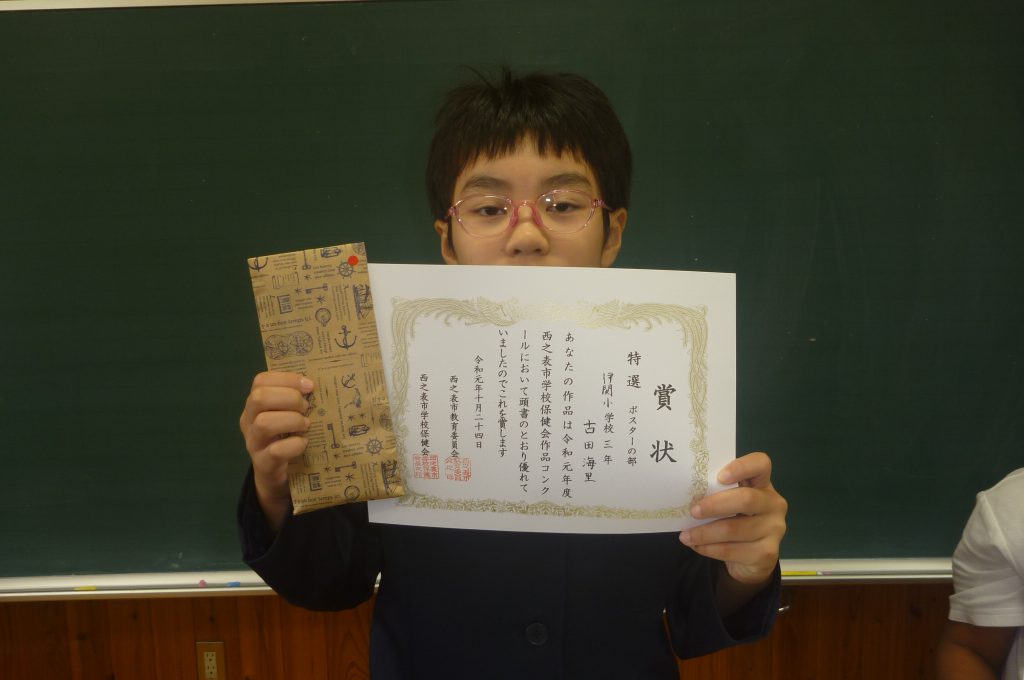 賞状
特選 ポスターの部
伊関小学校三年
古田海里
あなたの作品は令和元年度
西之表市学校保健会作品コンク
ールにおいて頭書のとおり優れて
いましたのでこれを賞します
令和元年十月二十四日
西之表市教育委員会
西之表市学校保健会